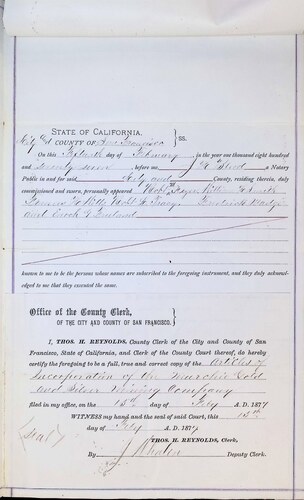 STATE OF CALIFORNIA,
City and COUNTY OF San Francisco } SS.
On this Fifteenth day of February in the year one thousand eight hundred
and seventy seven before me J. H. Blood a Notary
Public in and said City and County, residing therein, duly
commissioned and sworn, personally appeared Smith
and
known to me to be the persons whose names are subscribed to the foregoing instrument, and they duly acknowl-
edged to me that they executed the same.
Office of the County Clerk,
OF THE CITY AND COUNTY OF SAN FRANCISCO.
I, THOS. H. REYNOLDS, County Clerk of the City and County of San
Francisco, State of California, and Clerk of the County Court thereof, do hereby
certify the foregoing to be a full, true and correct copy of the Articles of
Incorporation of the Gold
and Silver Mining Company
filed in my office, on the 15th day of Feby A.D. 1877
WITNESS my hand and the seal of said Court, this 15th
day of Feby A.D. 1877
(Seal) THOS. H. REYNOLDS, Clerk.
By J. Whalen Deputy Clerk.